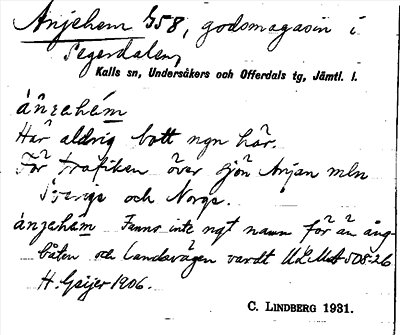 Anjehem G58, godsmagasin i
Segerdalen,
Kalls sn, Undersåkers och Offerdals tg, Jämtl. l.
ánʒahém
Har aldrig bott ngn här.
För trafiken över sjön Anjan mln
Sverige och Norge.
ánʒahém Fanns inte ngt namn för än ång-
båten och landsvägen vardt ULMA 508:26
H. Geijer 1906.
C. LINDBERG 1931.